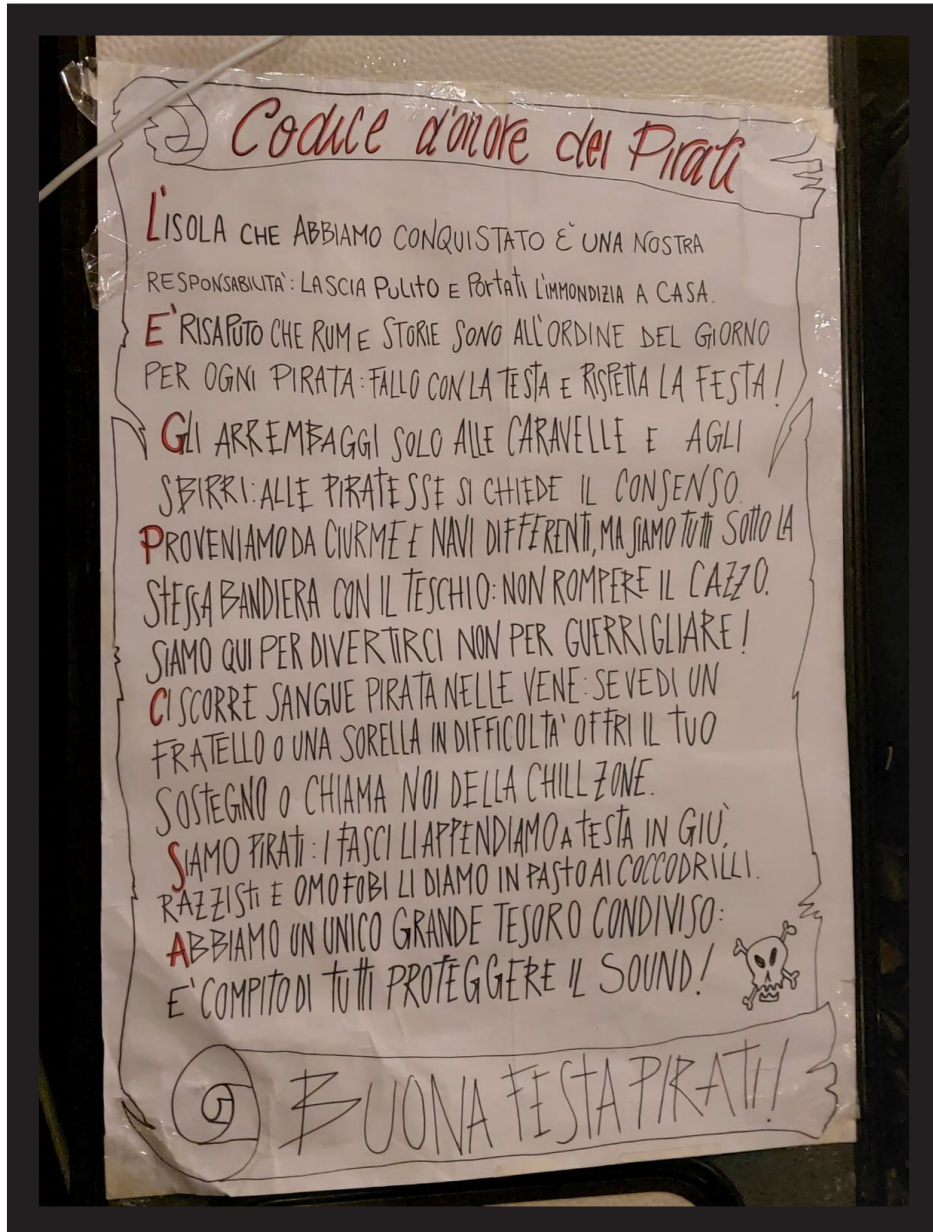 Codice d'onore dei Pirati
L'ISOLA CHE ABBIAMO CONQUISTATO È UNA NOSTRA
RESPONSABILITÀ: LASCIA PULITO E PORTATI L'IMMONDIZIA A CASA.
E' RISAPUTO CHE RUM E STORIE SONO ALL'ORDINE DEL GIORNO
PER OGNI PIRATA: FALLO CON LA TESTA E RISPETTA LA FESTA!
GLI ARREMBAGGI SOLO ALLE CARAVELLE E AGLI
SBIRRI: ALLE PIRATESSE SI CHIEDE IL CONSENSO.
PROVENIAMO DA CIURME E NAVI DIFFERENTI, MA SIAMO TUTTI SOTTO LA
STESSA BANDIERA CON IL TESCHIO: NON ROMPERE IL CAZZO.
SIAMO QUI PER DIVERTIRCI NON PER GUERRIGLIARE!
CI SCORRE SANGUE PIRATA NELLE VENE: SE VEDI UN
FRATELLO O UNA SORELLA IN DIFFICOLTÀ OFFRI IL TUO
SOSTEGNO O CHIAMA NOI DELLA CHILL ZONE.
SIAMO PIRATI: I FASCI LI APPENDIAMO A TESTA IN GIÙ,
RAZZISTI E OMOFOBI LI DIAMO IN PASTO AI COCCODRILLI.
ABBIAMO UN UNICO GRANDE TESORO CONDIVISO:
E' COMPITO DI TUTTI PROTEGGERE IL SOUND!
BUONA FESTA PIRATI!